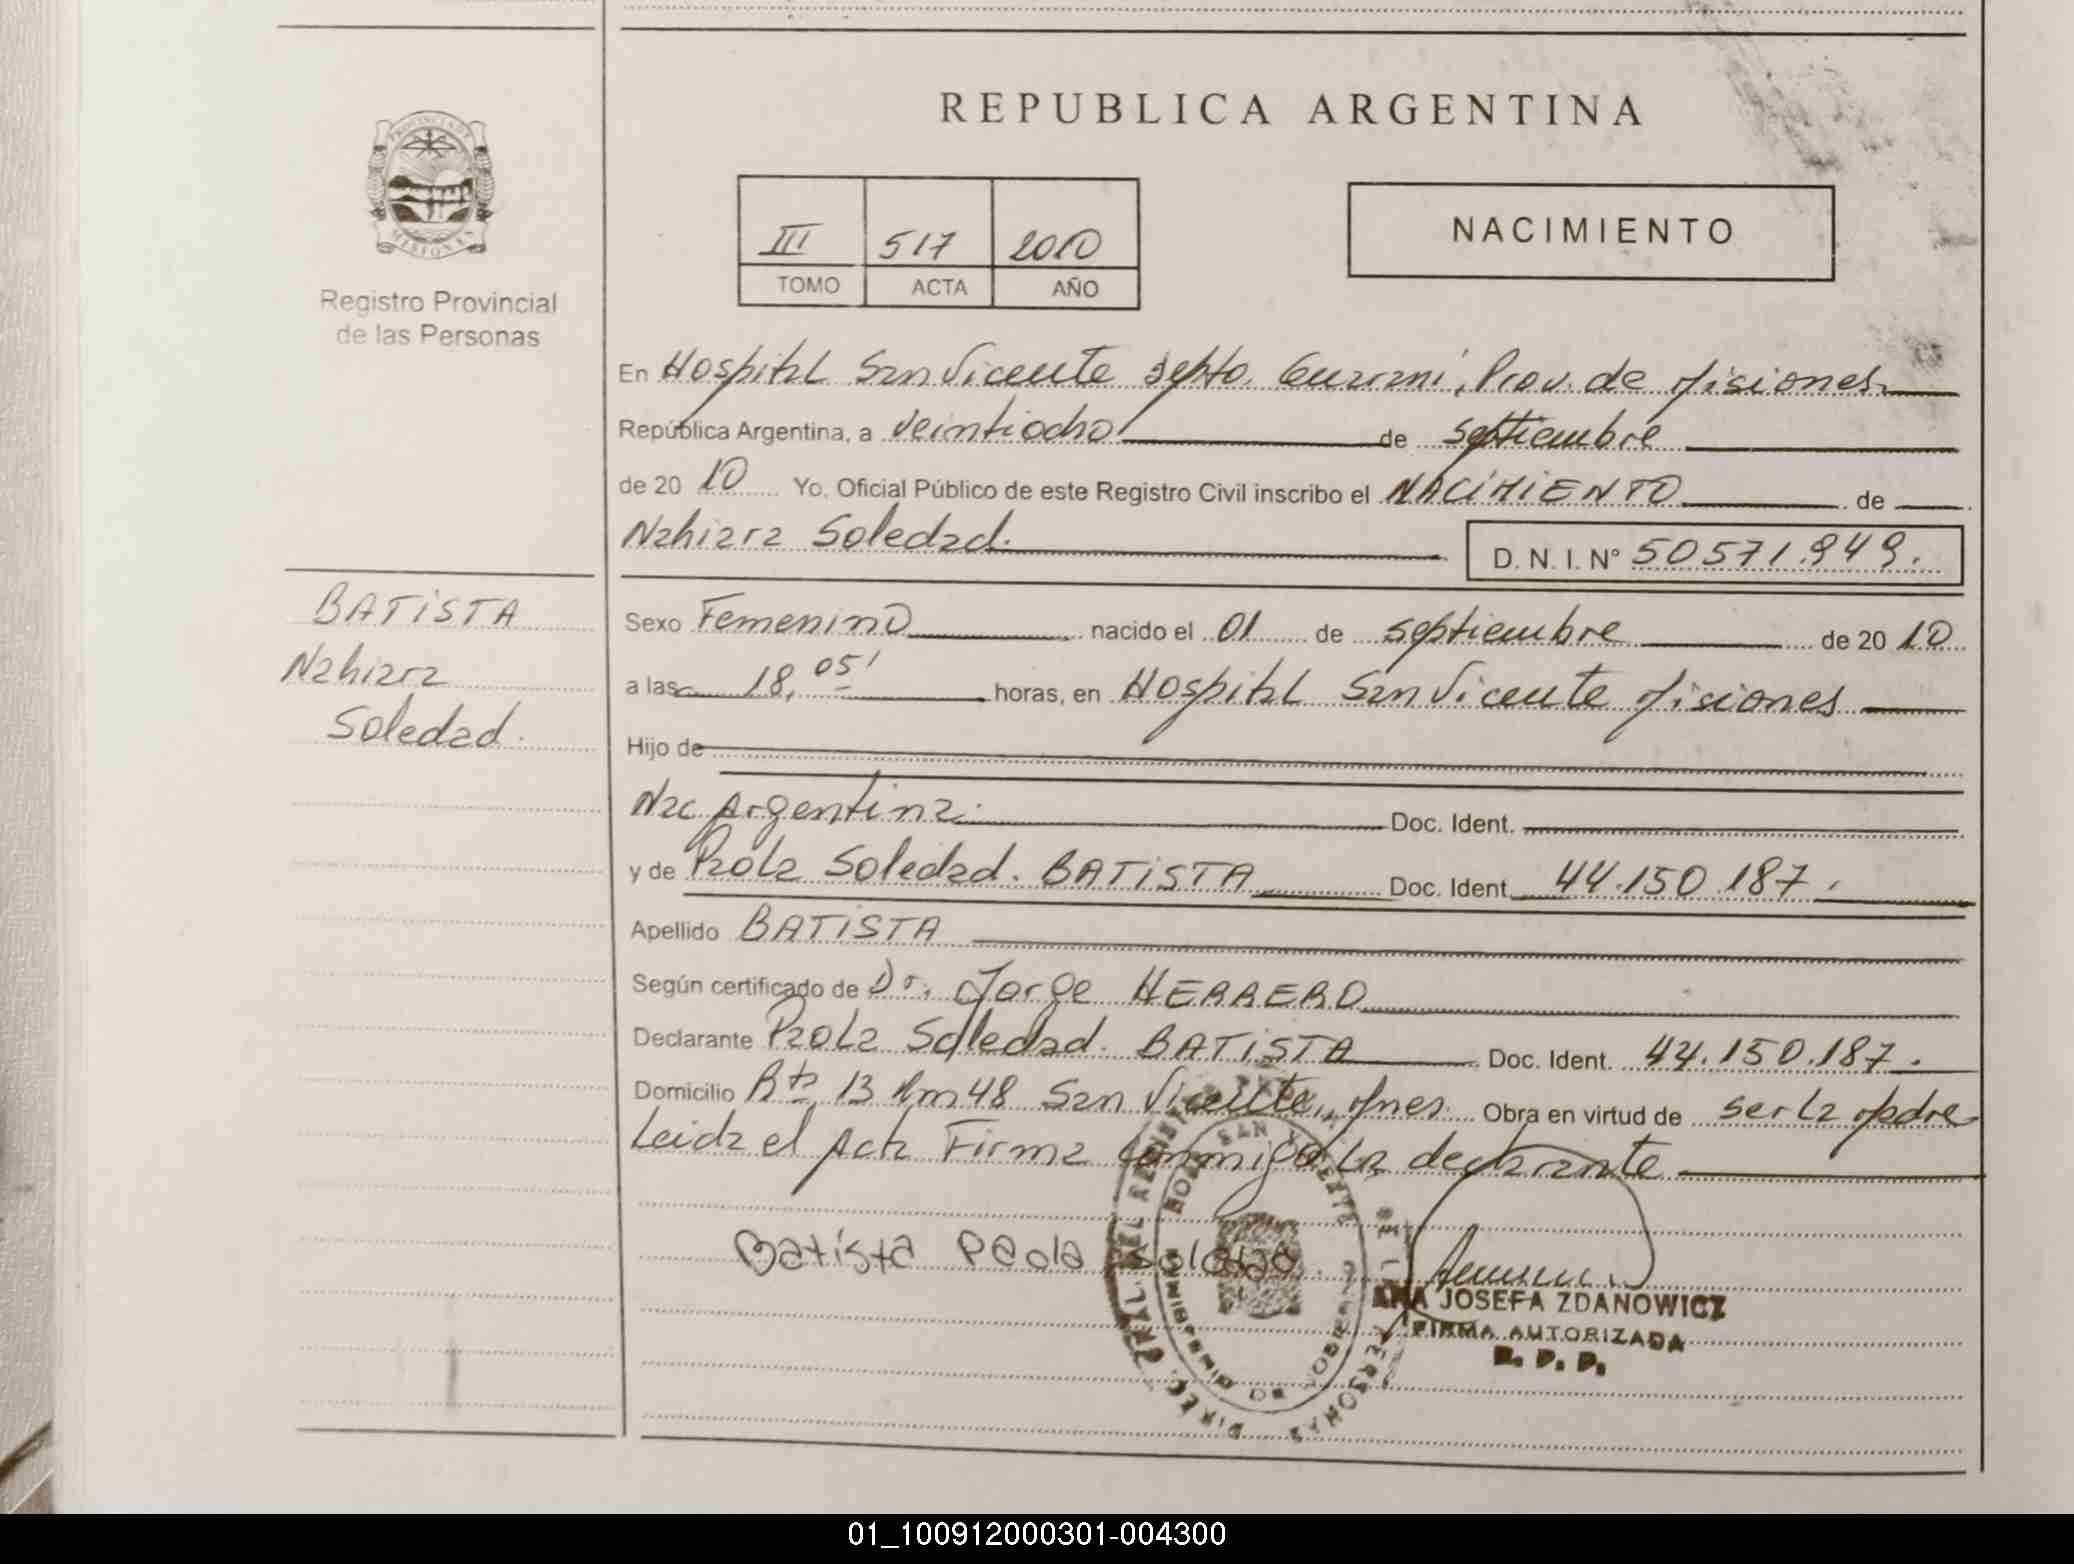 REPUBLICA ARGENTINA
PROVINCIA DE
MISIONES
Registro Provincial
de las Personas
III 517 2010
TOMO ACTA AÑO
NACIMIENTO
En Hospital San Vicente Depto. Guarani, Prov. de Misiones
República Argentina, a veintiocho de septiembre
de 20 10 Yo, Oficial Público de este Registro Civil inscribo el NACIMIENTO de
Nahiara Soledad. D. N. I. N° 50571.949.
BATISTA
Nahiara
Soledad.
Sexo Femenino nacido el 01 de septiembre de 20 10
a las 18,05' horas, en Hospital San Vicente Misiones
Hijo de
Nac Argentina. Doc. Ident.
y de Paola Soledad. BATISTA Doc. Ident. 44.150.187.
Apellido BATISTA
Según certificado de Dr. Jorge HERRERO
Declarante Paola Soledad. BATISTA Doc. Ident. 44.150.187.
Domicilio Rta 13 Km 48 San Vicente, Mnes. Obra en virtud de ser la Madre
Leida el Acta Firma conmigo La declarante
Batista Paola Soledad.
SAN VICENTE
ANA JOSEFA ZDANOWICZ
FIRMA AUTORIZADA
R. P. P.
01_100912000301-004300